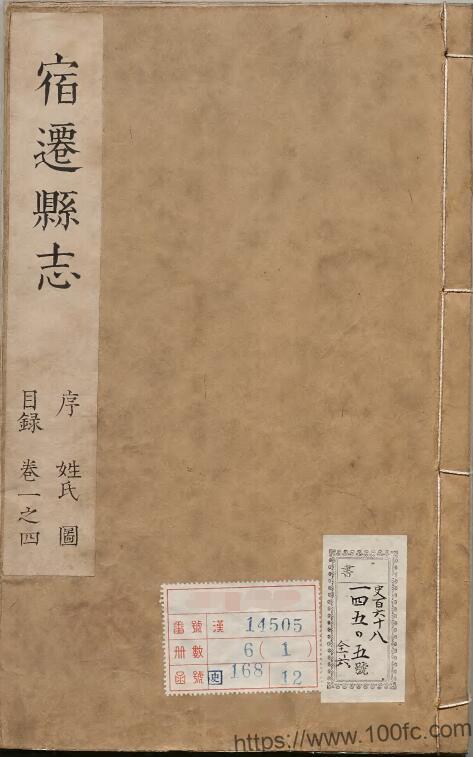 宿遷縣志
序 姓氏 圖
目錄 卷一之四
書
史百六十八
一四五〇五號
全六
番號 漢 14505
冊數 6(1)
函號 史 168 12
https://www.100fc.com